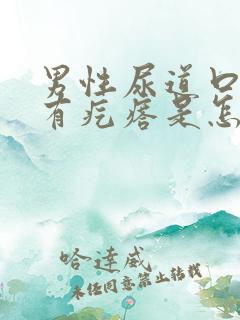 男性尿道口
有疙瘩是怎
哈達威
未经同意禁止转载